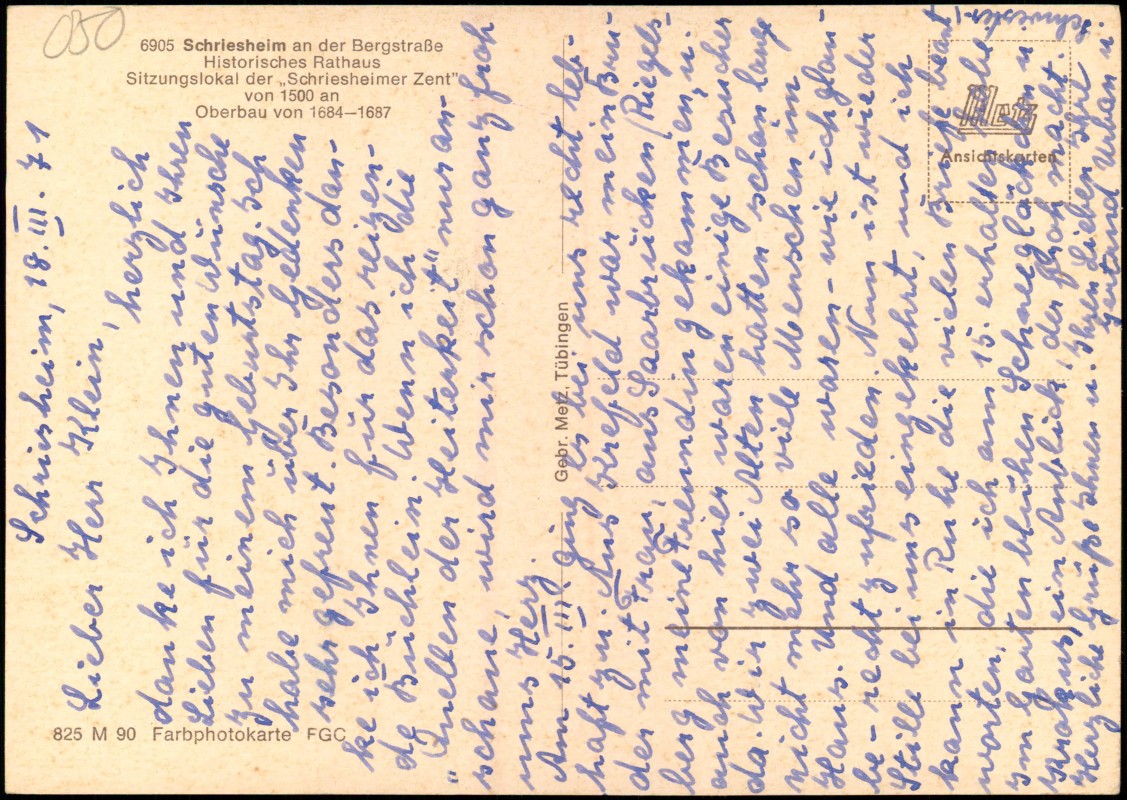 050
6905 Schriesheim an der Bergstraße
Historisches Rathaus
Sitzungslokal der „Schriesheimer Zent"
von 1500 an
Oberbau von 1684—1687
825 M 90 Farbphotokarte FGC
Gebr. Metz, Tübingen
Metz
Ansichtskarten
Schriesheim, 18. III. 71
Lieber Herr Klein,
danke ich Ihnen und Ihren herzlich
Lieben für die guten Wünsche
zu meinem Geburtstag. Ich
habe mich über Ihr Gedenken
sehr gefreut. Besonders dan-
ke ich Ihnen für das reizen-
de Büchlein. Wenn ich die
"Quellen der Heiterkeit" nur an-
schaue, wird mir schon ganz froh
ums Herz.
Am 15. III. ging es bei uns recht leb-
haft zu. Aus Krefeld war mein Bru-
der mit Frau, aus Saarbrücken (Riegels-
berg) meine Freundin gekommen, u.
auch von hier waren einige Besucher
da. Wir zwei Alten hatten schon lange
nicht mehr so viele Menschen im
Haus. Und alle waren - wie ich glau-
be - recht zufrieden. Nun ist wieder
Stille bei uns eingekehrt, und ich
kann in Ruhe die vielen Briefe beant-
worten, die ich am 15. erhalten habe.
Im Garten blühen Schneeglöckchen u.
Krokus, ein Anblick, der froh macht.
Herzliche Grüße Ihnen u. Ihren Lieben Ihre
Gertrud Urban u.
Schwester